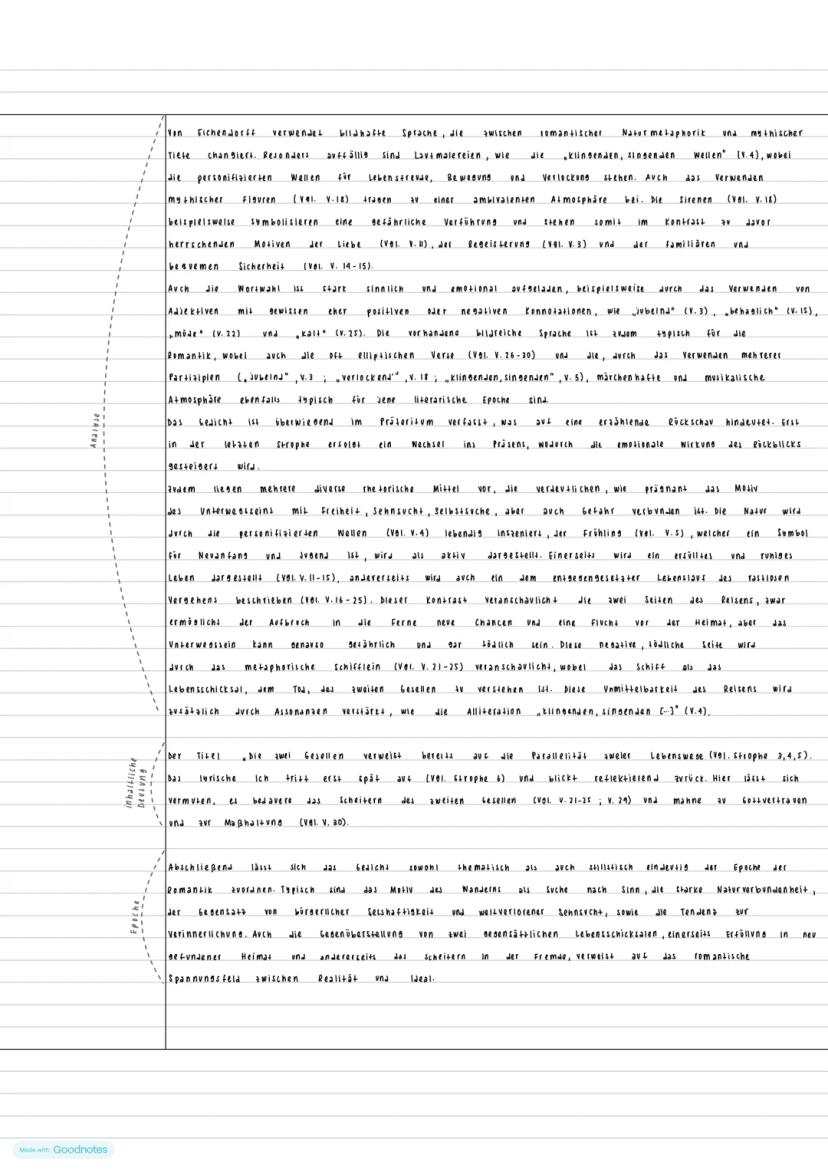 Von Eichendorff verwendet bildhafte Sprache, die zwischen romantischer Naturmetaphorik und mythischer
Tiefe changiert. Besonders auffällig sind Lautmalereien, wie die „klingenden, singenden Wellen" (V.4), wobei
die personifizierten Wellen für Lebensfreude, Bewegung und Verlockung stehen. Auch das Verwenden
mythischer Figuren (Vgl. V.18) tragen zu einer ambivalenten Atmosphäre bei. Die Sirenen (Vgl. V.18)
beispielsweise symbolisieren eine gefährliche Verführung und stehen somit im Kontrast zu davor
herrschenden Motiven der Liebe (Vgl. V.11), der Begeisterung (Vgl. V.3) und der familiären und
bequemen Sicherheit (Vgl. V. 14-15).
Auch die Wortwahl ist stark sinnlich und emotional aufgeladen, beispielsweise durch das Verwenden von
Adjektiven mit gewissen eher positiven oder negativen Konnotationen, wie „jubelnd" (V.3), „behaglich" (V.15),
„müde" (V.22) und „kalt" (V.25). Die vorhandene bildreiche Sprache ist zudem typisch für die
Romantik, wobei auch die oft elliptischen Verse (Vgl. V.26-30) und die, durch das Verwenden mehrerer
Partizipien („jubelnd", V.3 ; „verlockend", V.18 ; „klingenden, singenden", V.5), märchenhafte und musikalische
Atmosphäre ebenfalls typisch für jene literarische Epoche sind.
Das Gedicht ist überwiegend im Präteritum verfasst, was auf eine erzählende Rückschau hindeutet. Erst
in der letzten Strophe erfolgt ein Wechsel ins Präsens, wodurch die emotionale Wirkung des Rückblicks
gesteigert wird.
Zudem liegen mehrere diverse rhetorische Mittel vor, die verdeutlichen, wie prägnant das Motiv
des Unterwegsseins mit Freiheit, Sehnsucht, Selbstsuche, aber auch Gefahr verbunden ist. Die Natur wird
durch die personifizierten Wellen (Vgl. V.4) lebendig inszeniert, der Frühling (Vgl. V.5), welcher ein Symbol
für Neuanfang und Jugend ist, wird als aktiv dargestellt. Einerseits wird ein erfülltes und ruhiges
Leben dargestellt (Vgl. V.11-15), andererseits wird auch ein dem entgegengesetzter Lebenslauf des rastlosen
Vergehens beschrieben (Vgl. V.16-25). Dieser Kontrast veranschaulicht die zwei Seiten des Reisens, zwar
ermöglicht der Aufbruch in die Ferne neue Chancen und eine Flucht vor der Heimat, aber das
Unterwegssein kann genauso gefährlich und gar tödlich sein. Diese negative, tödliche Seite wird
durch das metaphorische Schifflein (Vgl. V.21-25) veranschaulicht, wobei das Schiff als das
Lebensschicksal, dem Tod, des zweiten Gesellen zu verstehen ist. Diese Unmittelbarkeit des Reisens wird
zusätzlich durch Assonanzen verstärkt, wie die Alliteration „klingenden, singenden [...]" (V.4).
Der Titel „Die zwei Gesellen verweist bereits auf die Parallelität zweier Lebenswege (Vgl. Strophe 3,4,5).
Das lyrische Ich tritt erst spät auf (Vgl. Strophe 6) und blickt reflektierend zurück. Hier lässt sich
vermuten, es bedauere das Scheitern des zweiten Gesellen (Vgl. V.21-25 ; V. 29) und mahne zu Gottvertrauen
und zur Maßhaltung (Vgl. V.30).
Abschließend lässt sich das Gedicht sowohl thematisch als auch stilistisch eindeutig der Epoche der
Romantik zuordnen. Typisch sind das Motiv des Wanderns als Suche nach Sinn, die starke Naturverbundenheit,
der Gegensatz von bürgerlicher Sesshaftigkeit und weltverlorener Sehnsucht, sowie die Tendenz zur
Verinnerlichung. Auch die Gegenüberstellung von zwei gegensätzlichen Lebensschicksalen, einerseits Erfüllung in neu
gefundener Heimat und andererseits das Scheitern in der Fremde, verweist auf das romantische
Spannungsfeld zwischen Realität und Ideal.
Analyse
inhaltliche
Deutung
Epoche
Made with Goodnotes